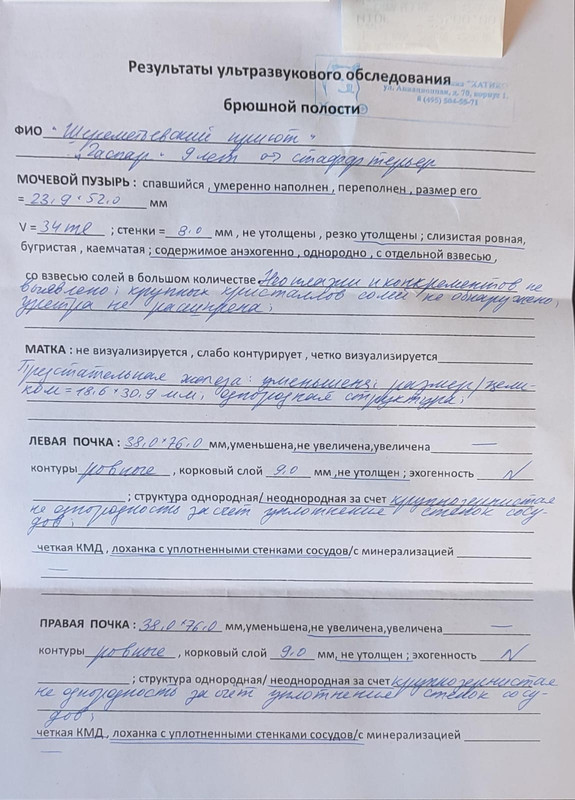 Результаты ультразвукового обследования
"ХАТИКО"
ул. Авиационная, д. 70, корпус 1,
8 (495) 504-55-71
брюшной полости
ФИО "Шереметьевский приют"
"Гаспар" 9 лет стаффтерьер
МОЧЕВОЙ ПУЗЫРЬ : спавшийся , умеренно наполнен , переполнен , размер его
= 23,9*52,0 мм
V = 34 ml ; стенки = 8,0 мм , не утолщены , резко утолщены ; слизистая ровная,
бугристая , каемчатая ; содержимое анэхогенно , однородно , с отдельной взвесью ,
со взвесью солей в большом количестве Неоплазии и конкрементов не
выявлено; крупных кристаллов солей не обнаружено;
уретра не расширена;
МАТКА : не визуализируется , слабо контурирует , четко визуализируется
Предстательная железа: уменьшена; размер/цели-
ком = 18,6*30,9 мм; однородная структура;
ЛЕВАЯ ПОЧКА : 38,0*76,0 мм,уменьшена,не увеличена,увеличена —
контуры ровные , корковый слой 9,0 мм ,не утолщен ; эхогенность N
; структура однородная/ неоднородная за счет крупнозернистая
не однородность за счет уплотнение стенок сосу-
дов;
четкая КМД , лоханка с уплотненными стенками сосудов/с минерализацией
—
ПРАВАЯ ПОЧКА : 38,0*76,0 мм,уменьшена,не увеличена,увеличена —
контуры ровные , корковый слой 9,0 мм, не утолщен ; эхогенность N
; структура однородная/ неоднородная за счет крупнозернистая
не однородность за счет уплотнение стенок сосу-
дов;
четкая КМД , лоханка с уплотненными стенками сосудов/с минерализацией
—